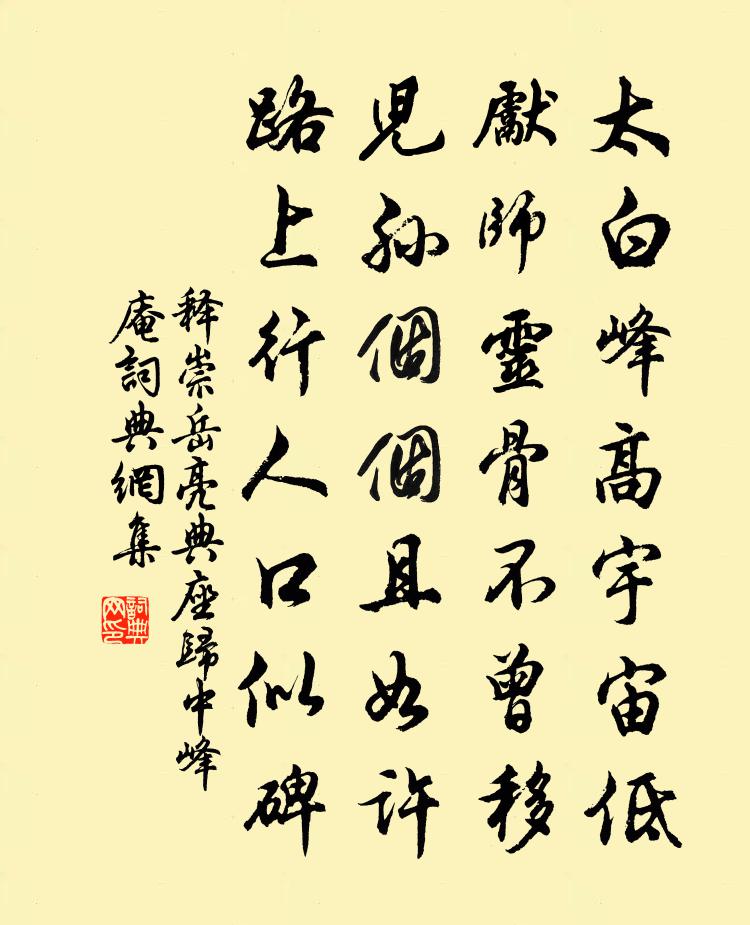 太白峰高宇宙低
獻師靈骨不曾移
兒孫個個且如許
路上行人口似碑
释崇岳亮典座歸中峰
庵詞典網集
詞典网印